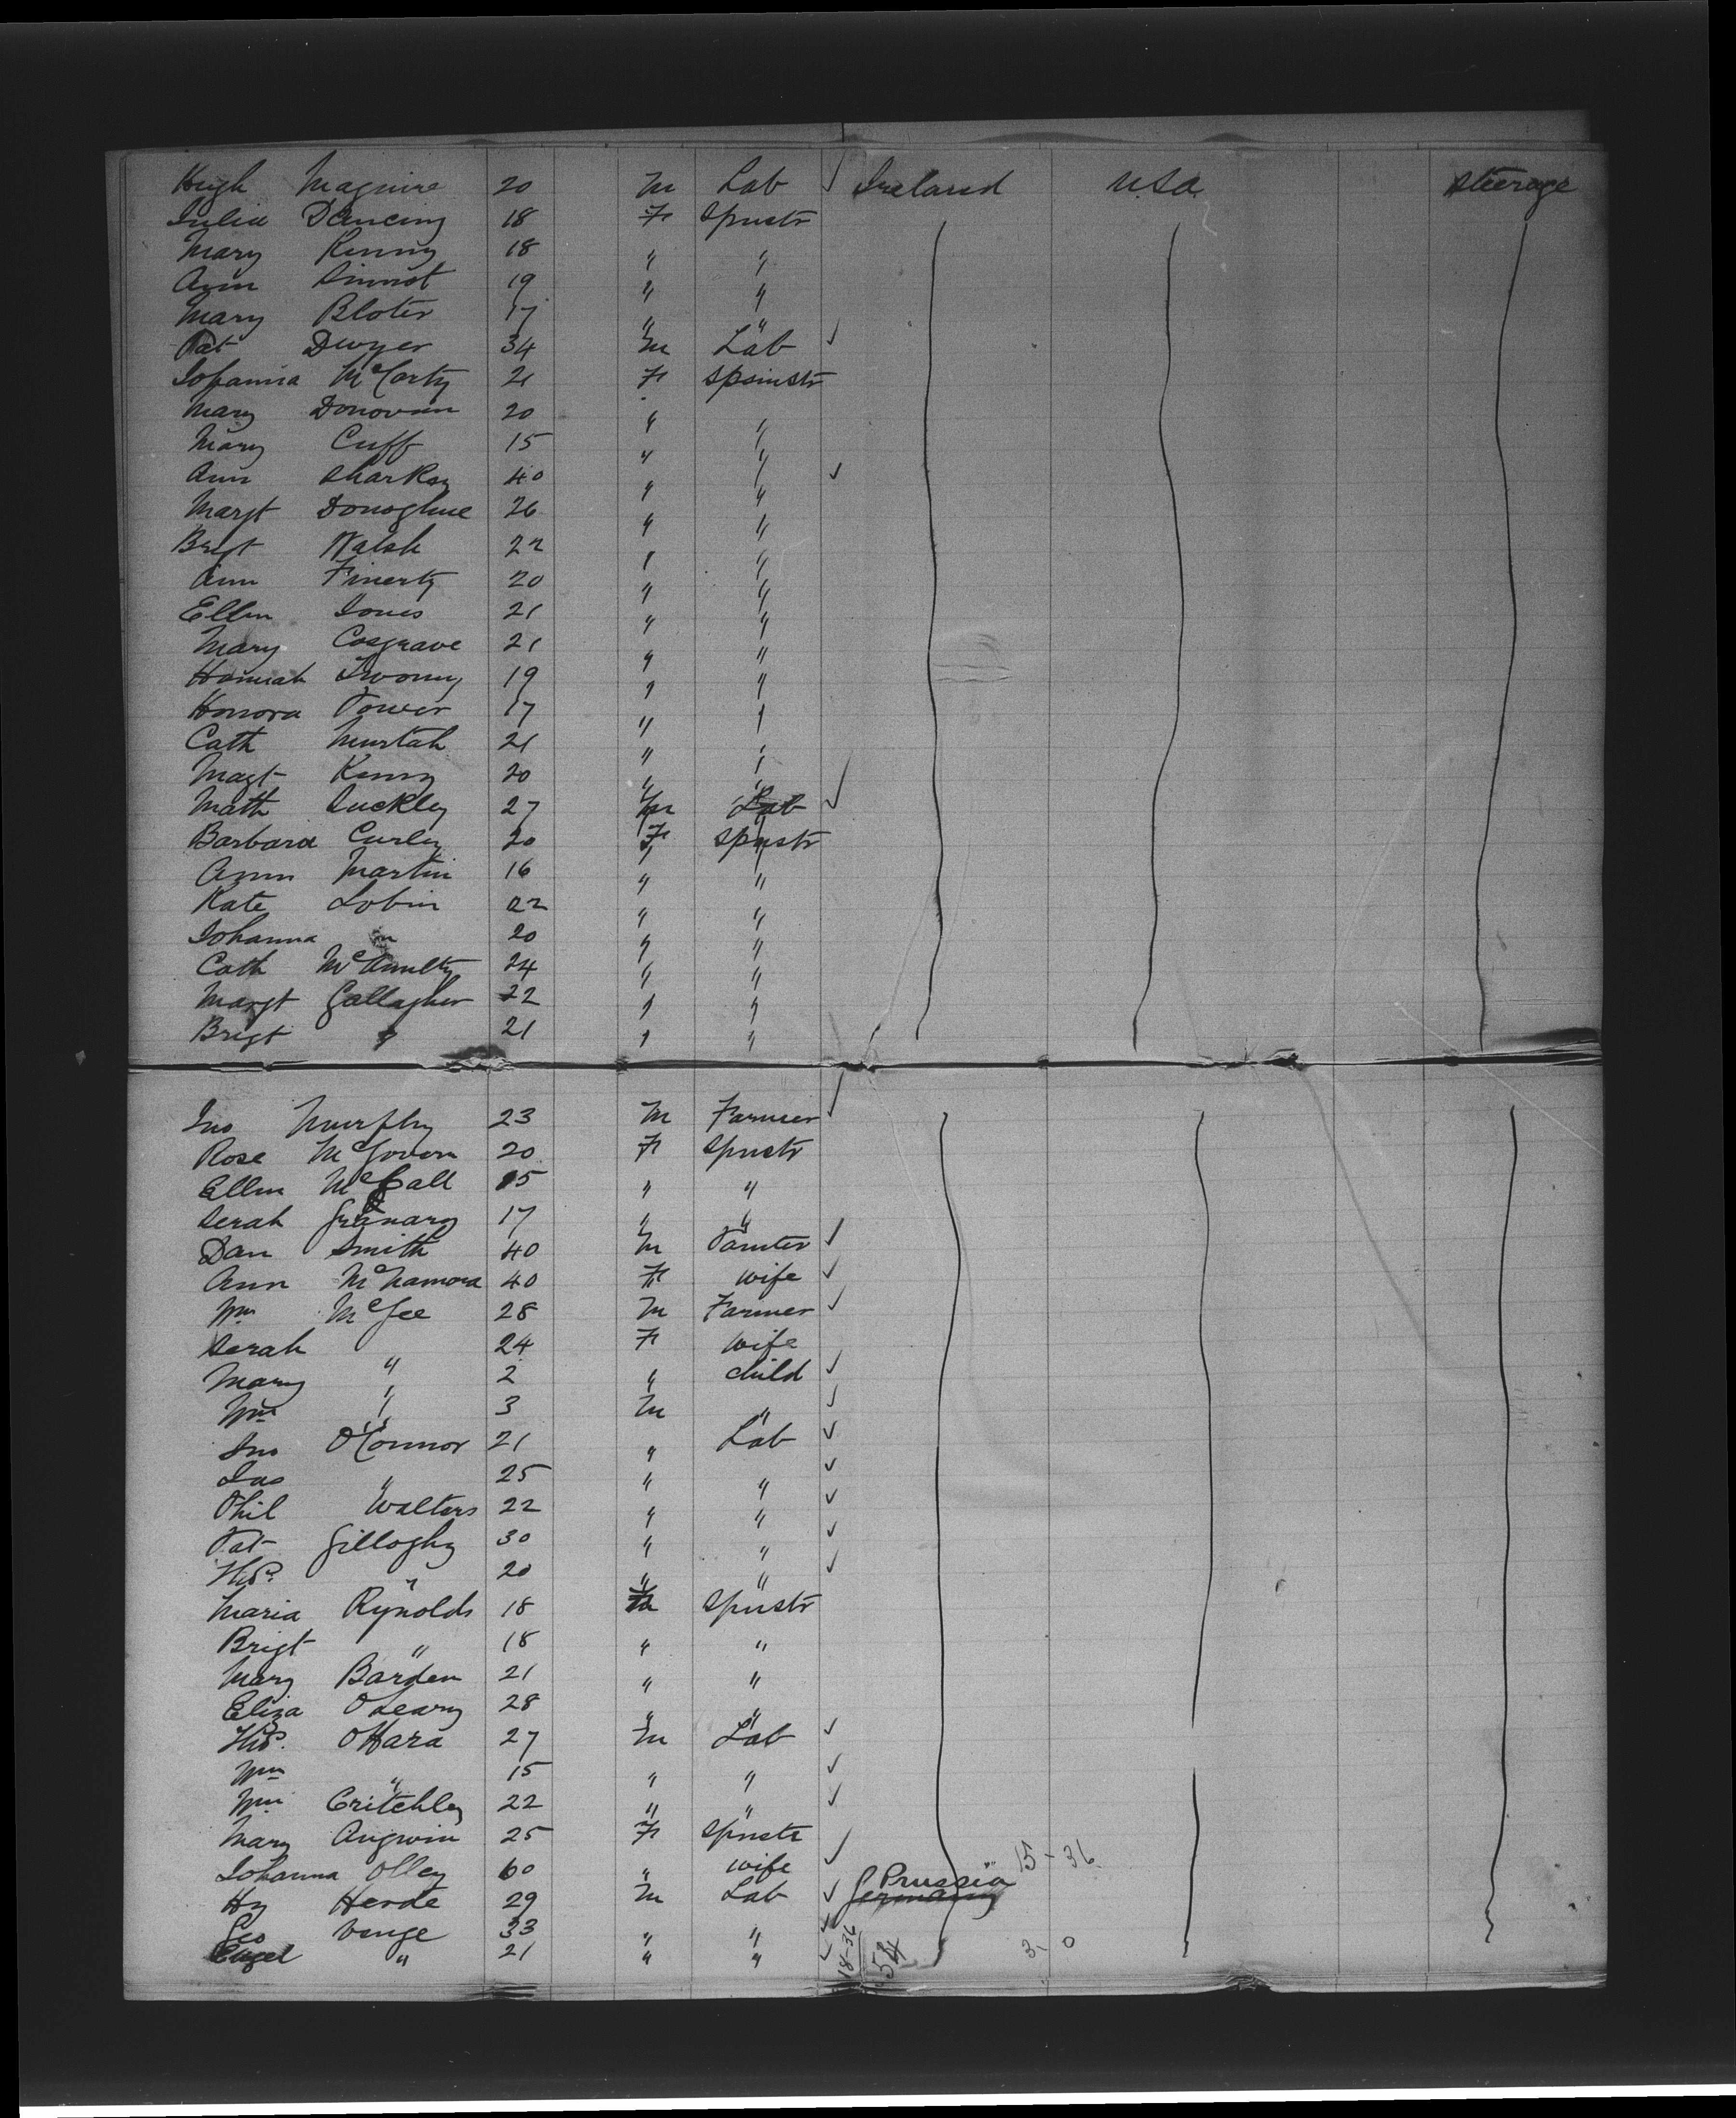 Hugh Maguire 20 M Lab ✓ Ireland U.S.A. Steerage
Julia Dancing 18 F Spnstr
Mary Kenny 18 " "
Ann Sinnot 19 " "
Mary Bloter 17 " "
Pat Dwyer 34 M Lab ✓
Johanna McCarty 21 F Spinstr
Mary Donovan 20 " "
Mary Cuff 15 " "
Ann Sharkey 40 " " ✓
Margt Donoghue 26 " "
Brigt Walsh 22 " "
Ann Finerty 20 " "
Ellen Jones 21 " "
Mary Cosgrave 21 " "
Hannah Twomy 19 " "
Honora Power 17 " "
Cath Murtah 21 " "
Magt Kenny 20 " "
Math Suckley 27 M Lab ✓
Barbara Curley 20 F Spnstr
Ann Martin 16 " "
Kate Lobin 22 " "
Johanna " 20 " "
Cath McAnulty 24 " "
Margt Gallagher 22 " "
Brigt " 21 " "
Jno Murphy 23 M Farmer ✓
Rose McGovern 20 F Spnstr
Ellen McCall 15 " "
Serah Granary 17 " "
Dan Smith 40 M Painter ✓
Ann McNamara 40 F wife ✓
Wm McGee 28 M Farmer ✓
Serah " 24 F wife
Mary " 2 " child ✓
Wm " 3 M " ✓
Jno O'Connor 21 " Lab ✓
Jas " 25 " " ✓
Phil Walters 22 " " ✓
Pat Gilloghy 30 " " ✓
Thos. " 20 " " ✓
Maria Rynolds 18 F Spnstr
Brigt " 18 " "
Mary Barden 21 " "
Eliza OLeary 28 " "
Thos. OHara 27 M Lab ✓
Wm " 15 " " ✓
Wm Critchley 22 " " ✓
Mary Angwin 25 F Spnstr
Johanna Olley 60 " wife ✓ 15 - 36
Hy Herde 29 M Lab ✓ Germany Prussia
Geo Venge 33 " " ✓
Engel " 21 " " ✓ 18-36 54 3- 0